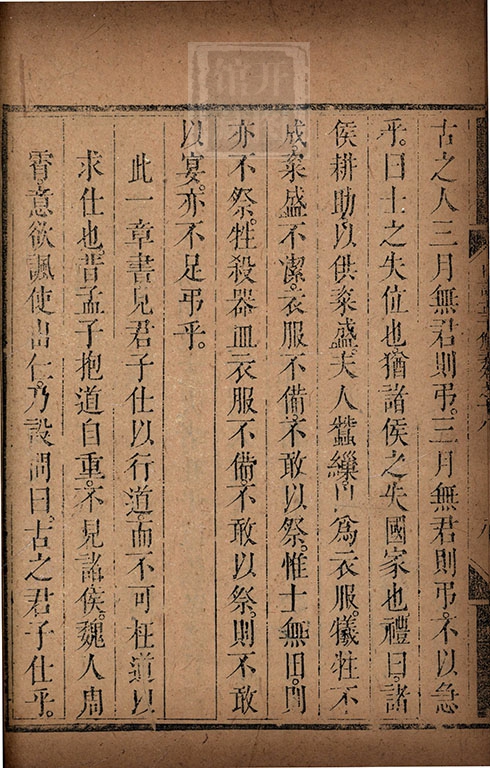 古之人三月無君則弔。三月無君則弔。不以急
乎。曰士之失位也。猶諸侯之失國家也禮曰。諸
侯耕助。以供粢盛。夫人蠶繅以為衣服。犧牲不
成。粢盛不潔。衣服不備。不敢以祭。惟士無田。則
亦不祭。牲殺器皿衣服不備。不敢以祭。則不敢
以宴。亦不足弔乎。
此一章書見君子仕以行道。而不可枉道以
求仕也。昔孟子抱道自重。不見諸侯。魏人周
霄。意欲諷使出仕。乃設問曰。古之君子仕乎。